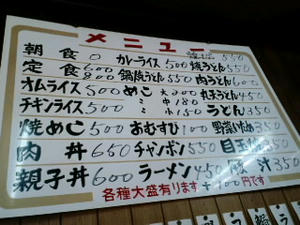 メニュー
朝食 0 カレーライス 500 焼うどん 550
定食 600 800 鍋焼うどん 550 肉うどん 600
オムライス 500 めこ 大200 丸子うどん 450
チキンライス 500 〃 中180
〃 小150 うどん 350
焼めこ 500 おむすび 100 野菜いため 350
肉丼 650 チャンポン 550 目玉
親子丼 600 ラーメン 450 汁 350
各種大盛有ります + 100円です